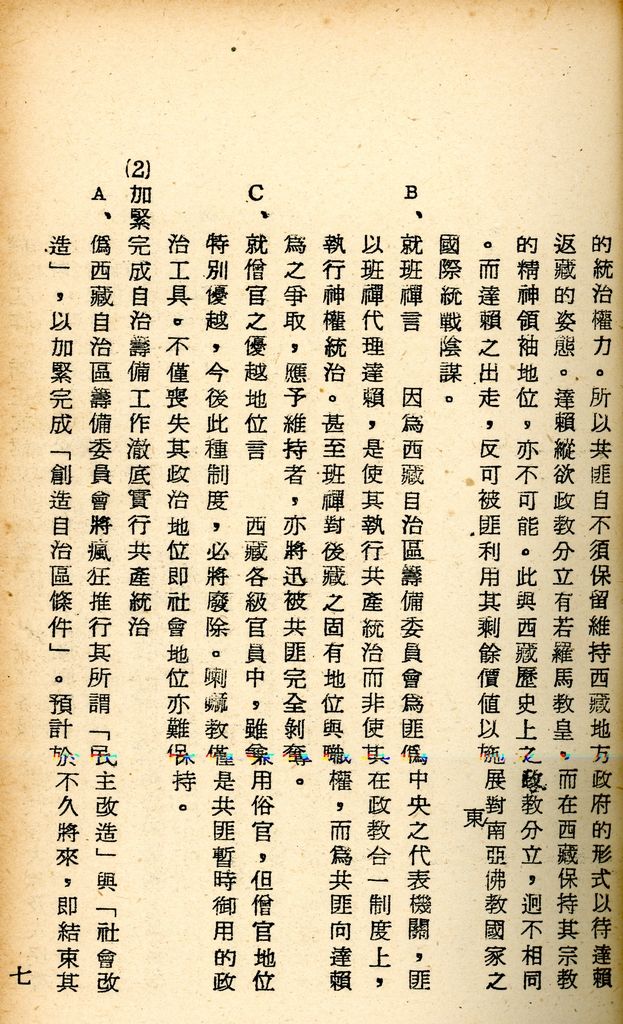 的統治權力。所以共匪自不須保留維持西藏地方政府的形式以待達賴
返藏的姿態。達賴縱欲政教分立有若羅馬教皇，而在西藏保持其宗教
的精神領袖地位，亦不可能。此與西藏歷史上之政教分立，迥不相同
。而達賴之出走，反可被匪利用其剩餘價值以施展對東南亞佛教國家之
國際統戰陰謀。
B、就班禪言　因爲西藏自治區籌備委員會爲匪僞中央之代表機關，匪
以班禪代理達賴，是使其執行共產統治而非使其在政教合一制度上，
執行神權統治。甚至班禪對後藏之固有地位與職權，而爲共匪向達賴
爲之爭取，應予維持者，亦將迅被共匪完全剝奪。
C、就僧官之優越地位言　西藏各級官員中，雖兼用俗官，但僧官地位
特別優越，今後此種制度，必將廢除。喇嘛教僅是共匪暫時御用的政
治工具。不僅喪失其政治地位即社會地位亦難保持。
(2)加緊完成自治籌備工作澈底實行共產統治
A、僞西藏自治區籌備委員會將瘋狂推行其所謂「民主改造」與「社會改
造」，以加緊完成「創造自治區條件」。預計於不久將來，即結束其
七